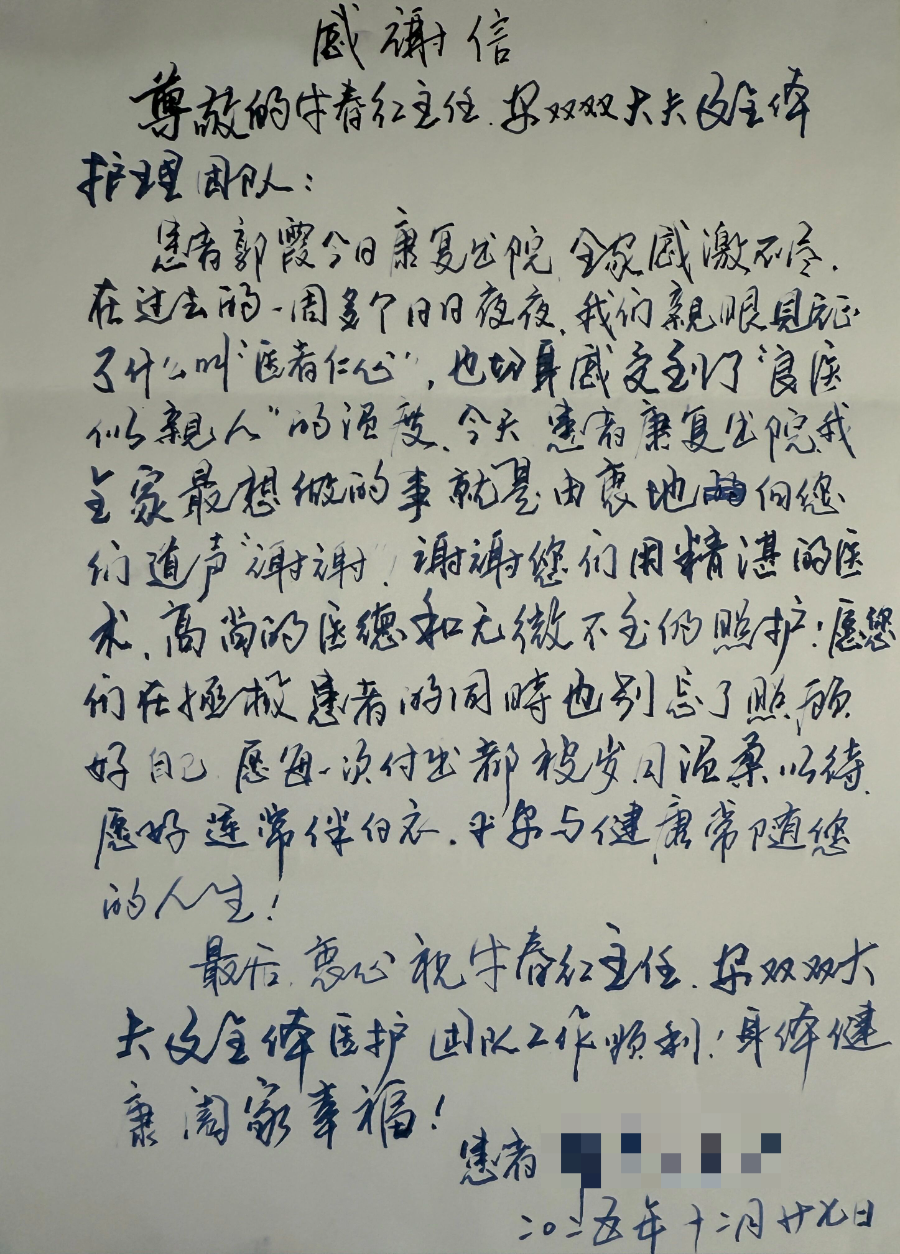 感谢信
尊敬的牛春红主任、安双双大夫及全体
护理团队：
患者郭霞今日康复出院，全家感激不尽。
在过去的一周多个日日夜夜，我们亲眼见证
了什么叫“医者仁心”，也切身感受到了“良医
似亲人”的温度。今天患者康复出院，我
全家最想做的事就是由衷地向您
们道声“谢谢”！谢谢您们用精湛的医
术、高尚的医德和无微不至的照护！愿您
们在拯救患者的同时也别忘了照顾
好自己。愿每一次付出都被岁月温柔以待，
愿好运常伴白衣，平安与健康常随您
的人生！
最后，衷心祝牛春红主任、安双双大
夫及全体医护团队工作顺利！身体健
康阖家幸福！
患者
二〇二五年十二月廿九日